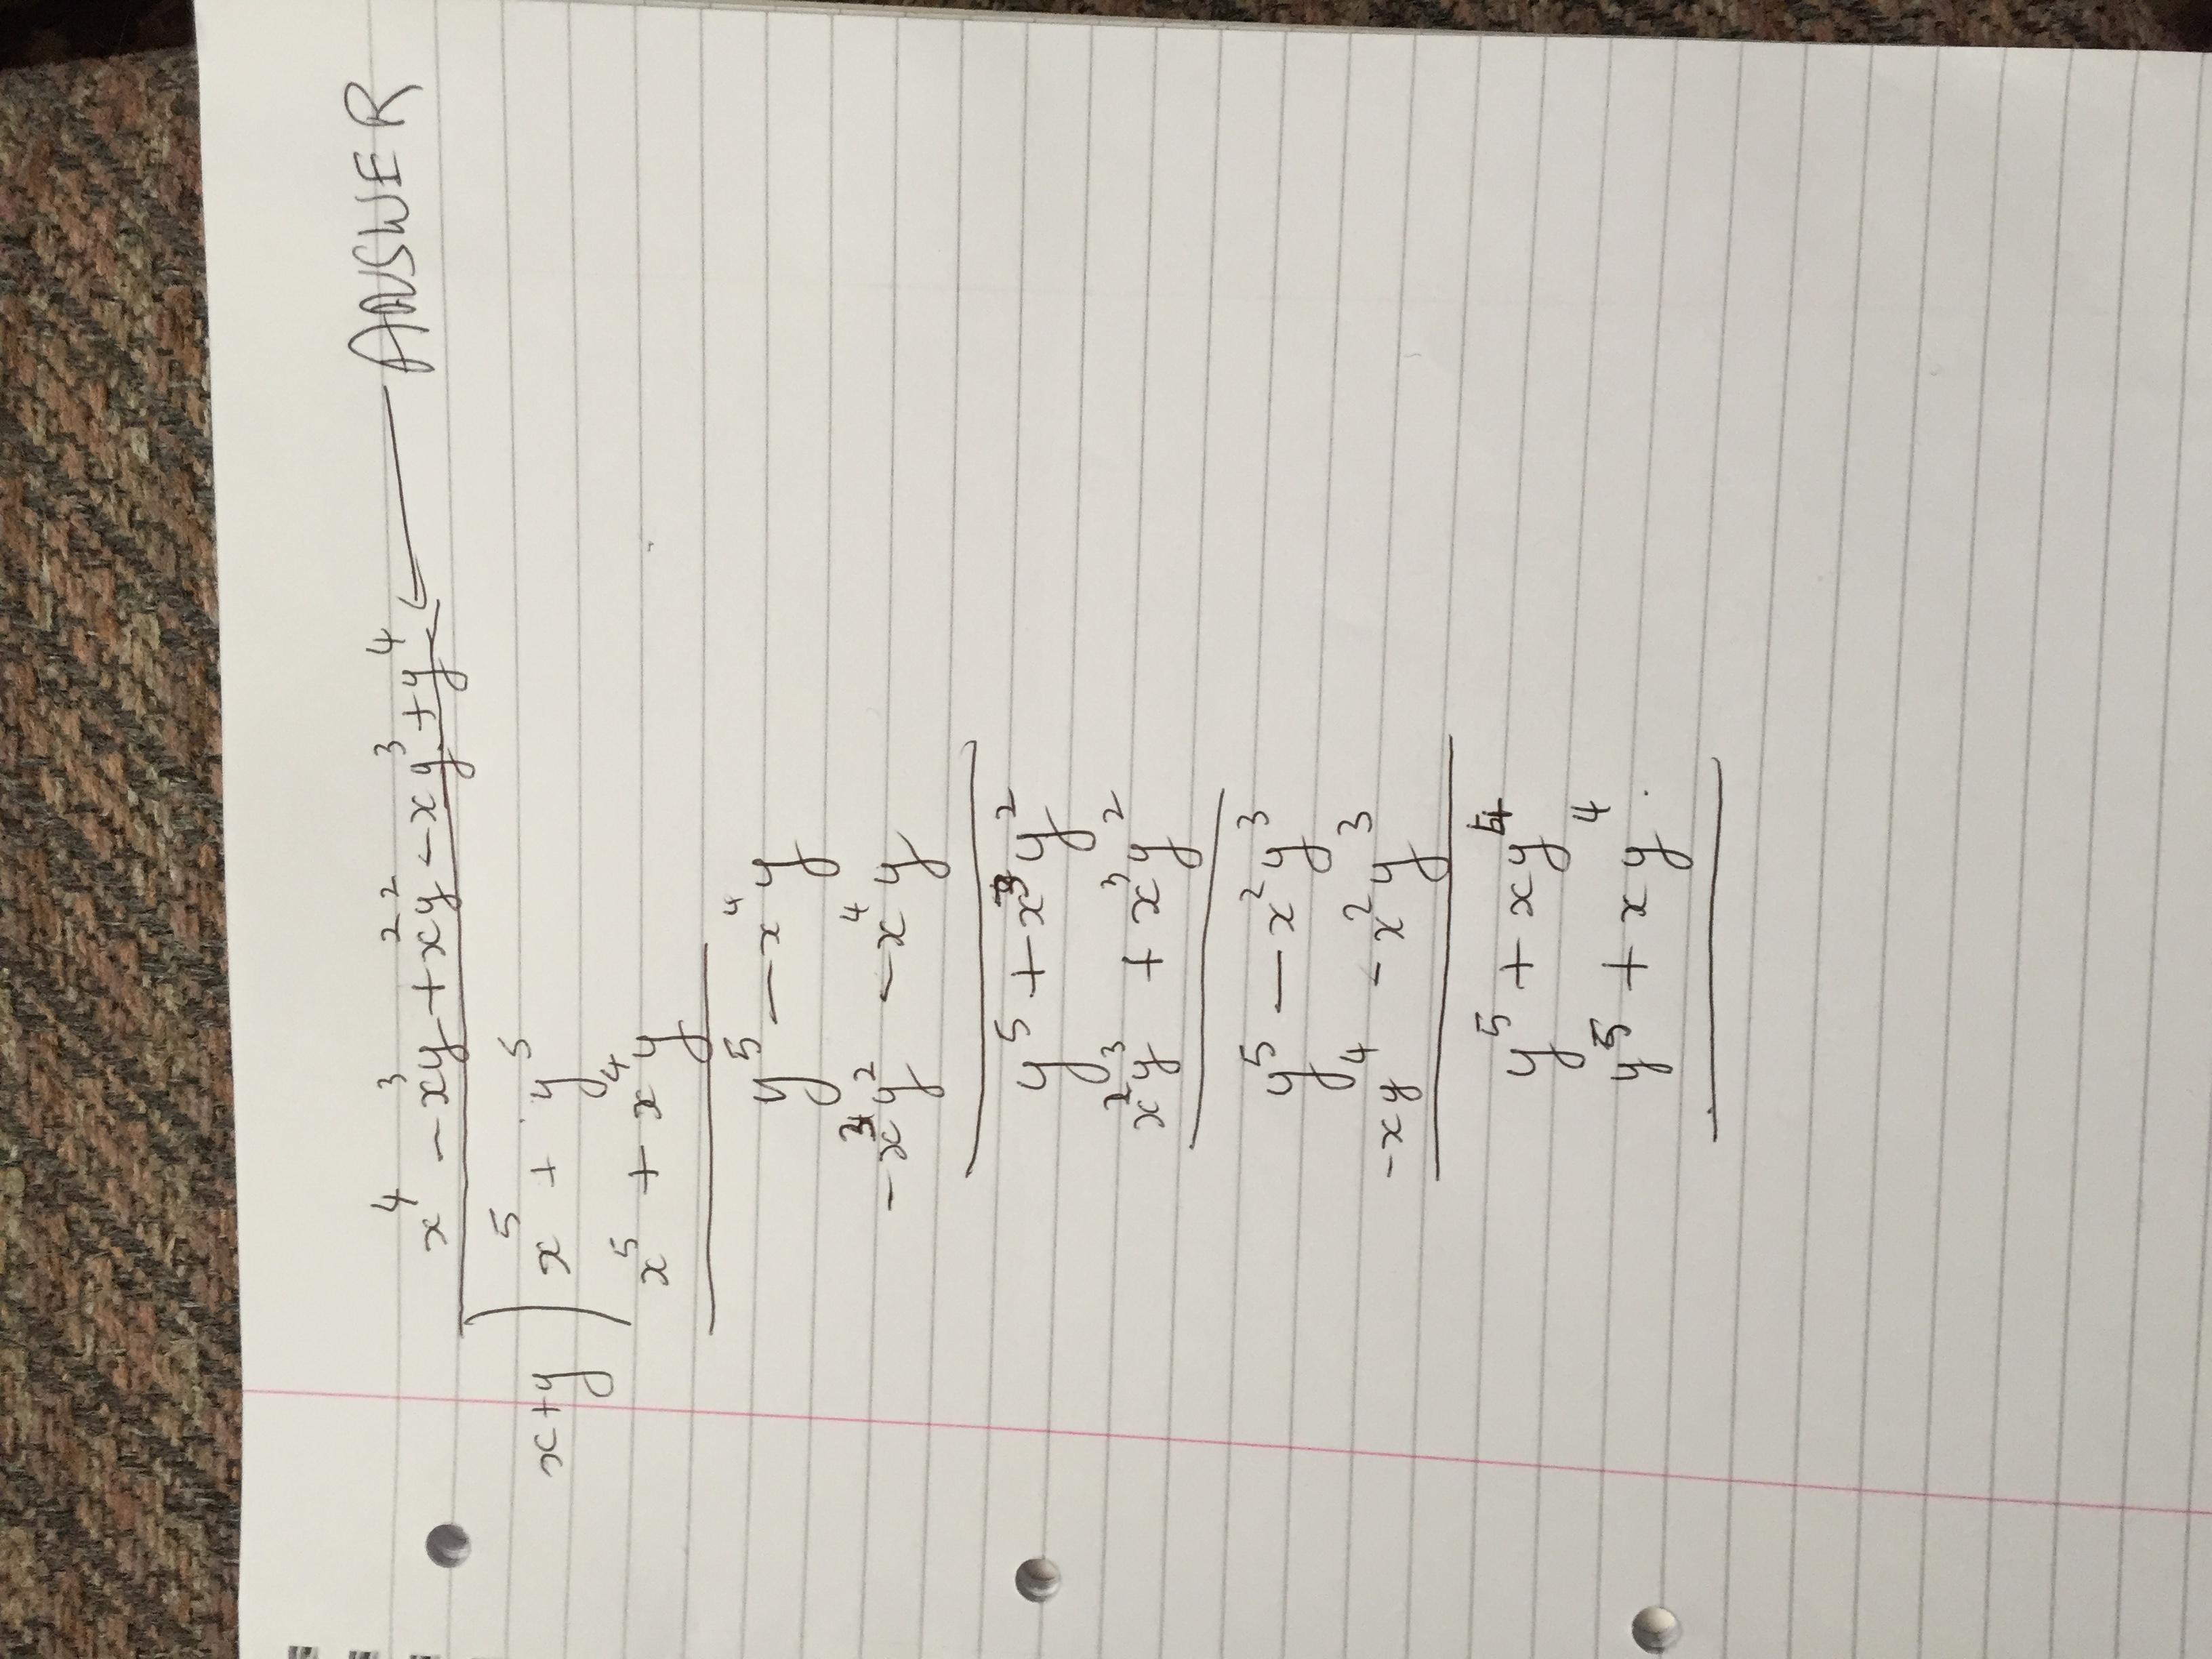 x⁴ - x³y + x²y² - xy³ + y⁴ ← ANSWER
x+y ) x⁵ + y⁵
x⁵ + x⁴y
y⁵ - x⁴y
-x³y² - x⁴y
y⁵ + x³y²
x²y³ + x³y²
y⁵ - x²y³
-xy⁴ - x²y³
y⁵ + xy⁴
y⁵ + xy⁴